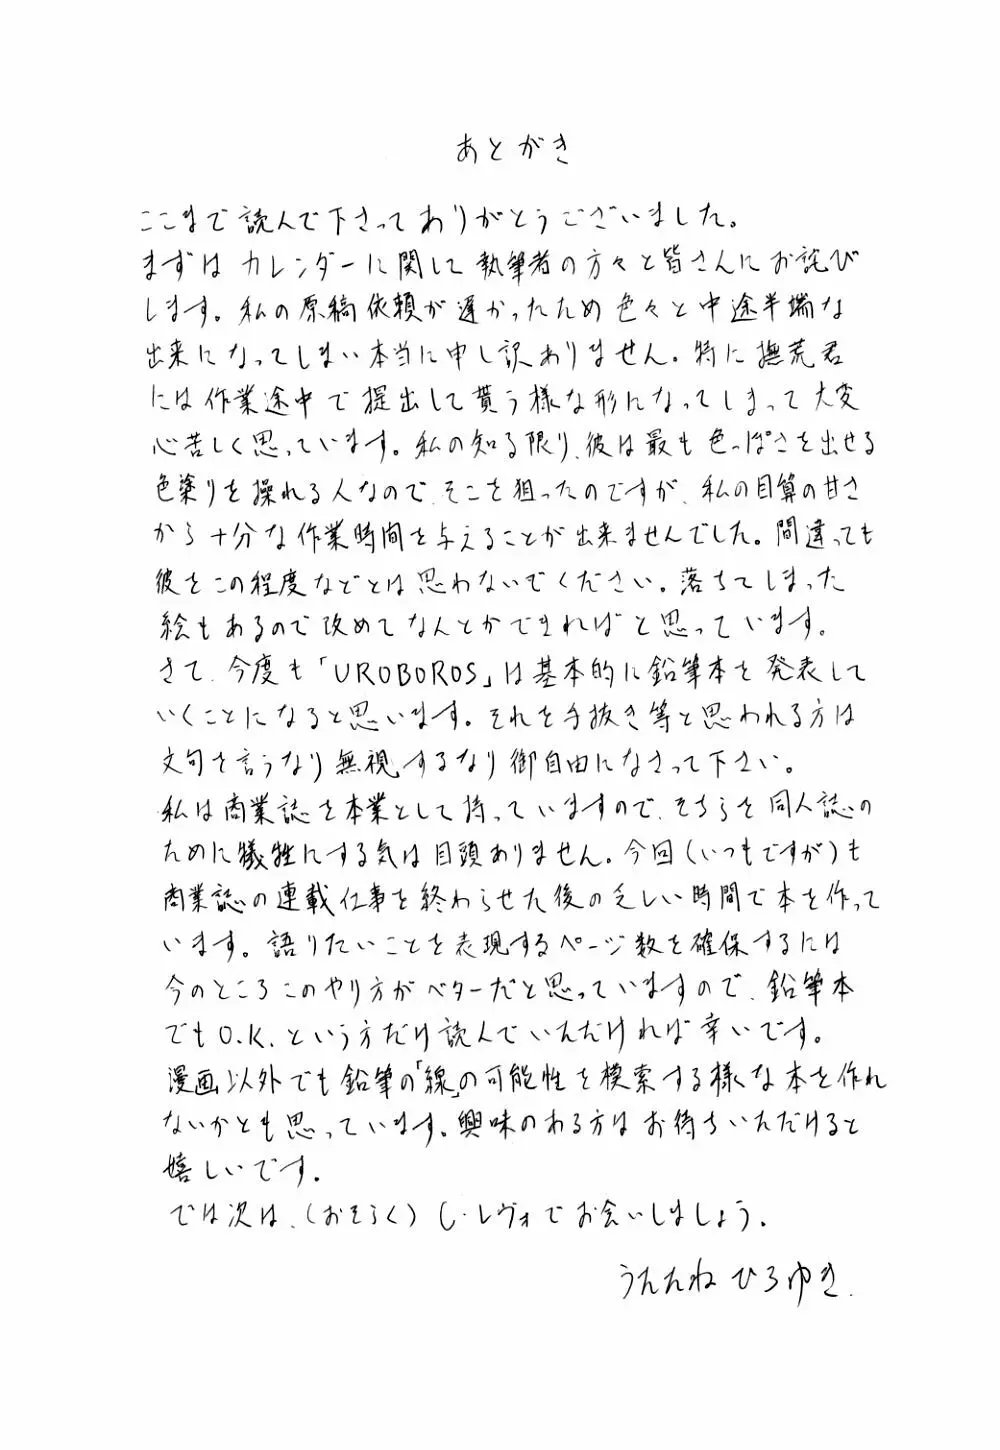 あとがき
ここまで読んで下さってありがとうございました。
まずはカレンダーに関して執筆者の方々と皆さんにお詫び
します。私の原稿依頼が遅かったため色々と中途半端な
出来になってしまい本当に申し訳ありません。特に撫荒君
には作業途中で提出して貰う様な形になってしまって大変
心苦しく思っています。私の知る限り、彼は最も色っぽさを出せる
色塗りを操れる人なので、そこを狙ったのですが、私の目算の甘さ
から十分な作業時間を与えることが出来ませんでした。間違っても
彼をこの程度などとは思わないでください。落ちてしまった
絵もあるので改めてなんとかできればと思っています。
さて、今度も「UROBOROS」は基本的に鉛筆本を発表して
いくことになると思います。それを手抜き等と思われる方は
文句を言うなり無視するなり御自由になさって下さい。
私は商業誌を本業として持っていますので、そちらを同人誌の
ために犠牲にする気は目頭ありません。今回(いつもですが)も
商業誌の連載仕事を終わらせた後の乏しい時間で本を作って
います。語りたいことを表現するページ数を確保するには
今のところこのやり方がベターだと思っていますので、鉛筆本
でもO.K.という方だけ読んでいただければ幸いです。
漫画以外でも鉛筆の「線」の可能性を模索する様な本を作れ
ないかとも思っています。興味のある方はお待ちいただけると
嬉しいです。
では次は、(おそらく)し・レヴォでお会いしましょう。
うたたねひろゆき.